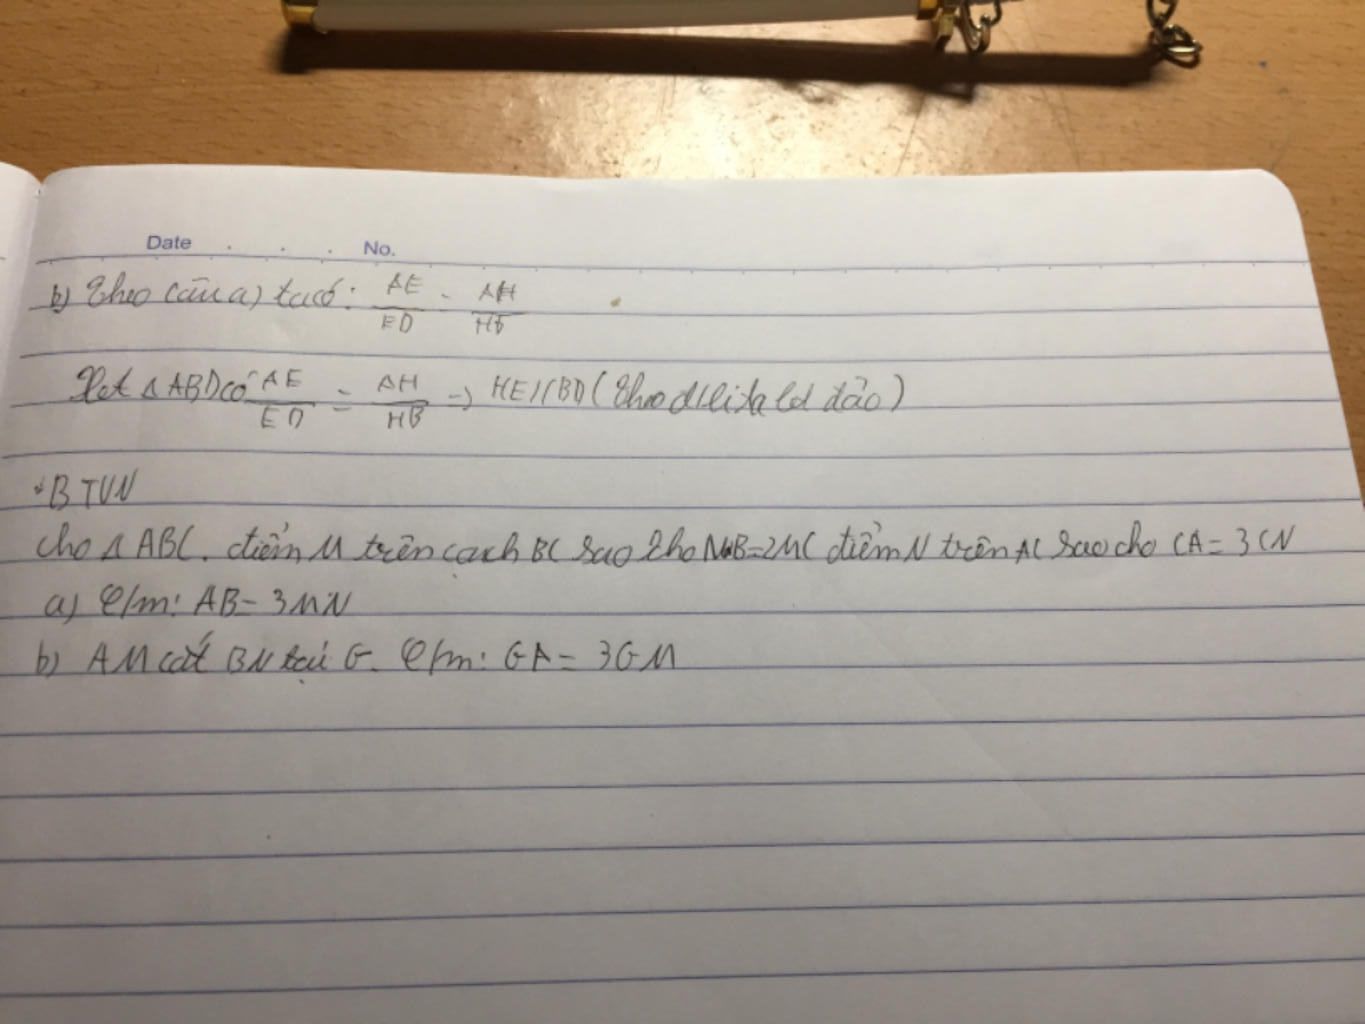 Date . . . No.
b) Theo câu a) ta có: AE/ED = AH/HB
Xét △ ABD có AE/ED = AH/HB → HE//BD (Theo đ/l ita lét đảo)
* BTVN
cho △ ABC. điểm M trên cạnh BC sao cho MB=2MC điểm N trên AC sao cho CA = 3CN
a) C/m: AB = 3MN
b) AM cắt BN tại G. C/m: GA = 3GM